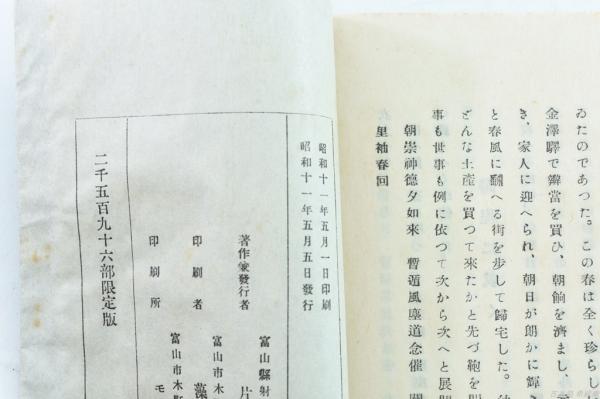 ゐたのであつた。この春は全く珍らし
金澤驛で辨當を買ひ、朝餉を濟まし、
き、家人に迎へられ、朝日が朗かに輝
と春風に飜へる街を歩して歸宅した。
どんな土產を買つて來たかと先づ鞄を開
事も世事も例に依つて次から次へと展開
朝崇神德夕如來 暫遁風塵道念催
里袖春回
昭和十一年五月一日印刷
昭和十一年五月五日發行
著作兼發行者
富山縣射
片
印刷者
富山市木
藻
印刷所
富山市木
モ
二千五百九十六部限定版